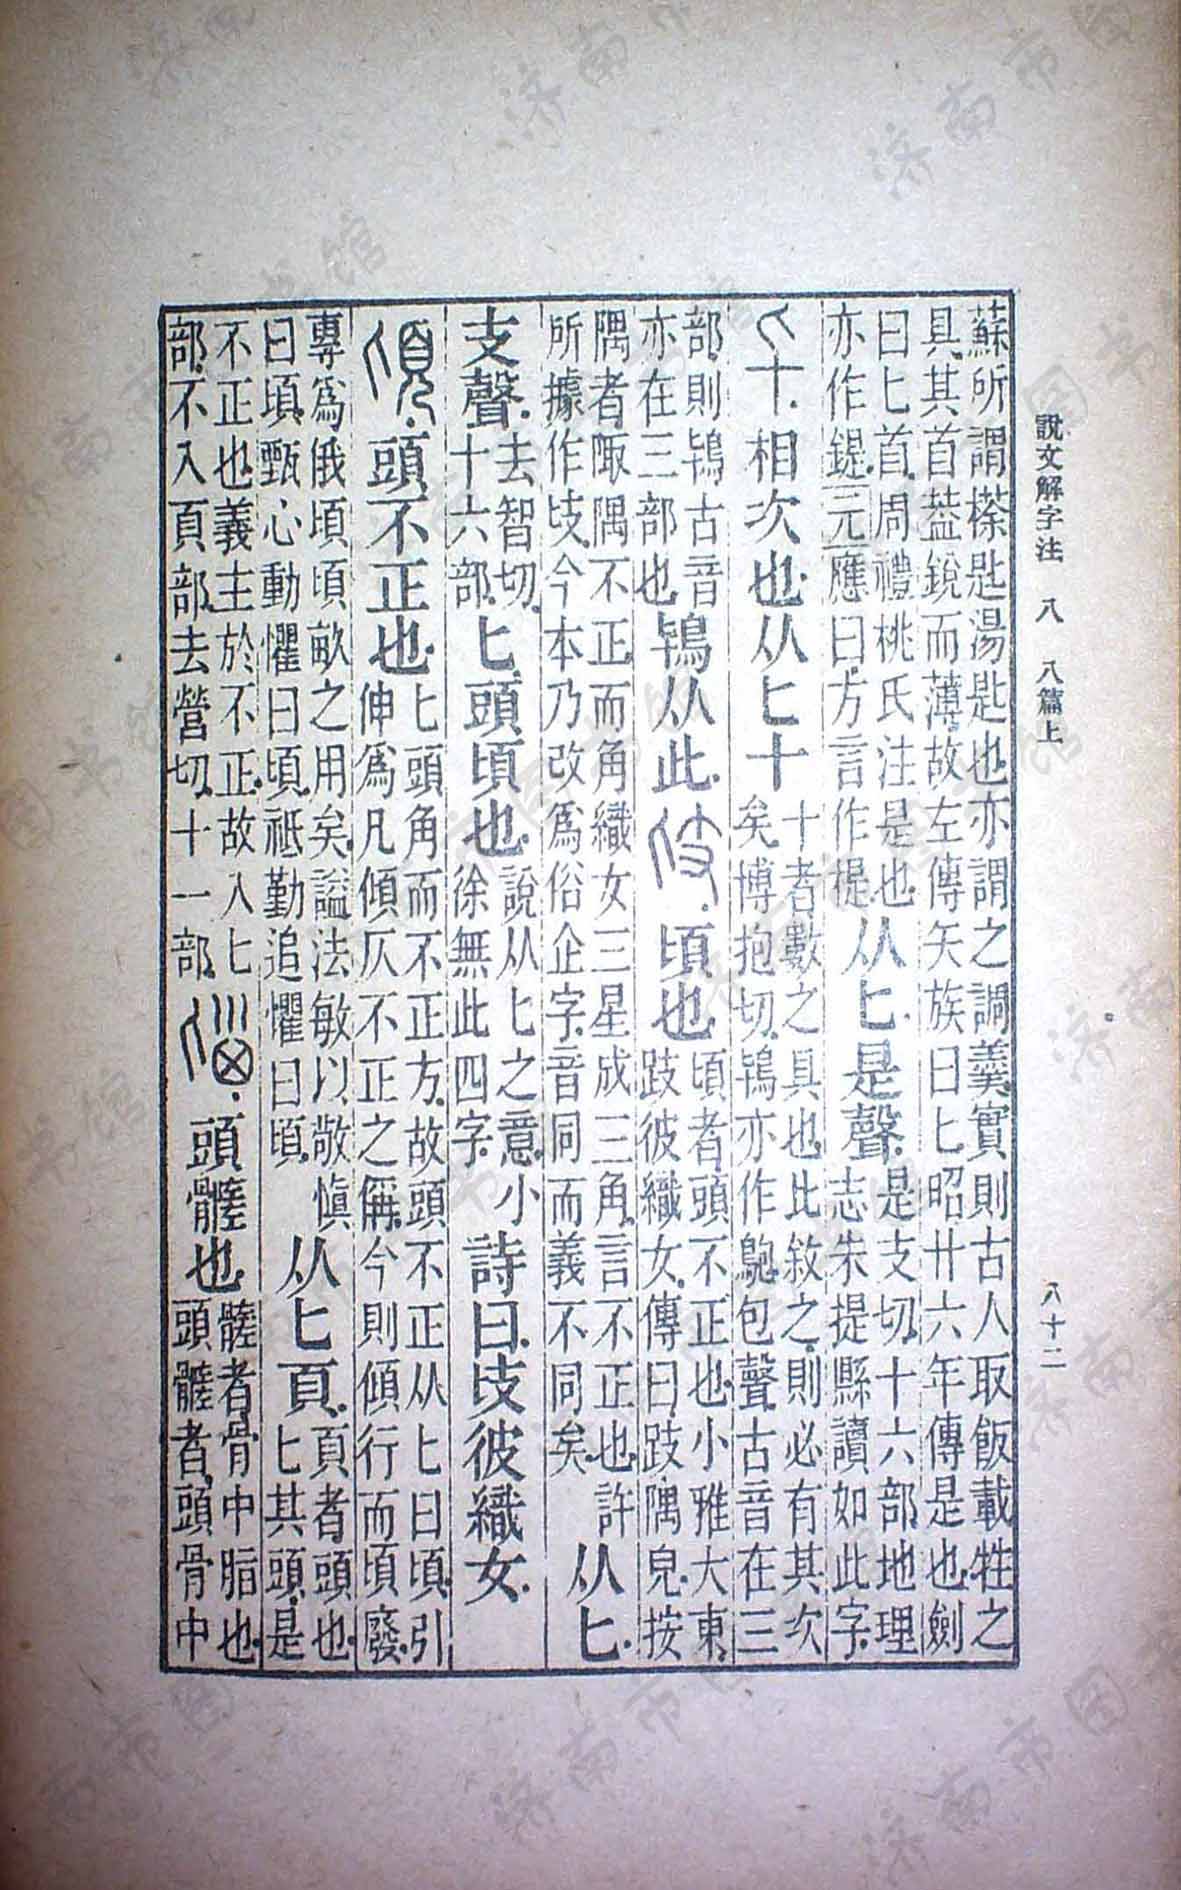 說文解字注 八 八篇上 八十二
蘇所謂㯡匙湯匙也亦謂之調羹實則古人取飯載牲之
具其首葢銳而薄故左傳矢族曰匕昭廿六年傳是也劍
曰匕首周禮桃氏注是也
亦作鍉元應曰方言作提
从匕是聲
是支切十六部地理
志朱提縣讀如此字
𠤏相次也从匕十
十者數之具也比敘之則必有其次
矣博抱切鴇亦作䳈包聲古音在三
部則鴇古音
亦在三部也
鴇从此𠤗頃也
頃者頭不正也小雅大東
跂彼織女傳曰跂隅皃按
隅者陬隅不正而角織女三星成三角言不正也許
所據作𠤗今本乃改爲俗企字音同而義不同矣
从匕
支聲
去智切
十六部
匕頭頃也
說从匕之意小
徐無此四字
詩曰𠤗彼織女
頃頭不正也
匕頭角而不正方故頭不正从匕曰頃引
伸爲凡傾仄不正之稱今則傾行而頃廢
專爲俄頃頃畝之用矣謚法敏以敬慎
曰頃甄心動懼曰頃祗勤追懼曰頃
从匕頁
頁者頭也
匕其頭是
不正也義主於不正故入匕
部不入頁部去營切十一部
𡿺頭𩪦也
𩪦者骨中脂也
頭𩪦者頭骨中